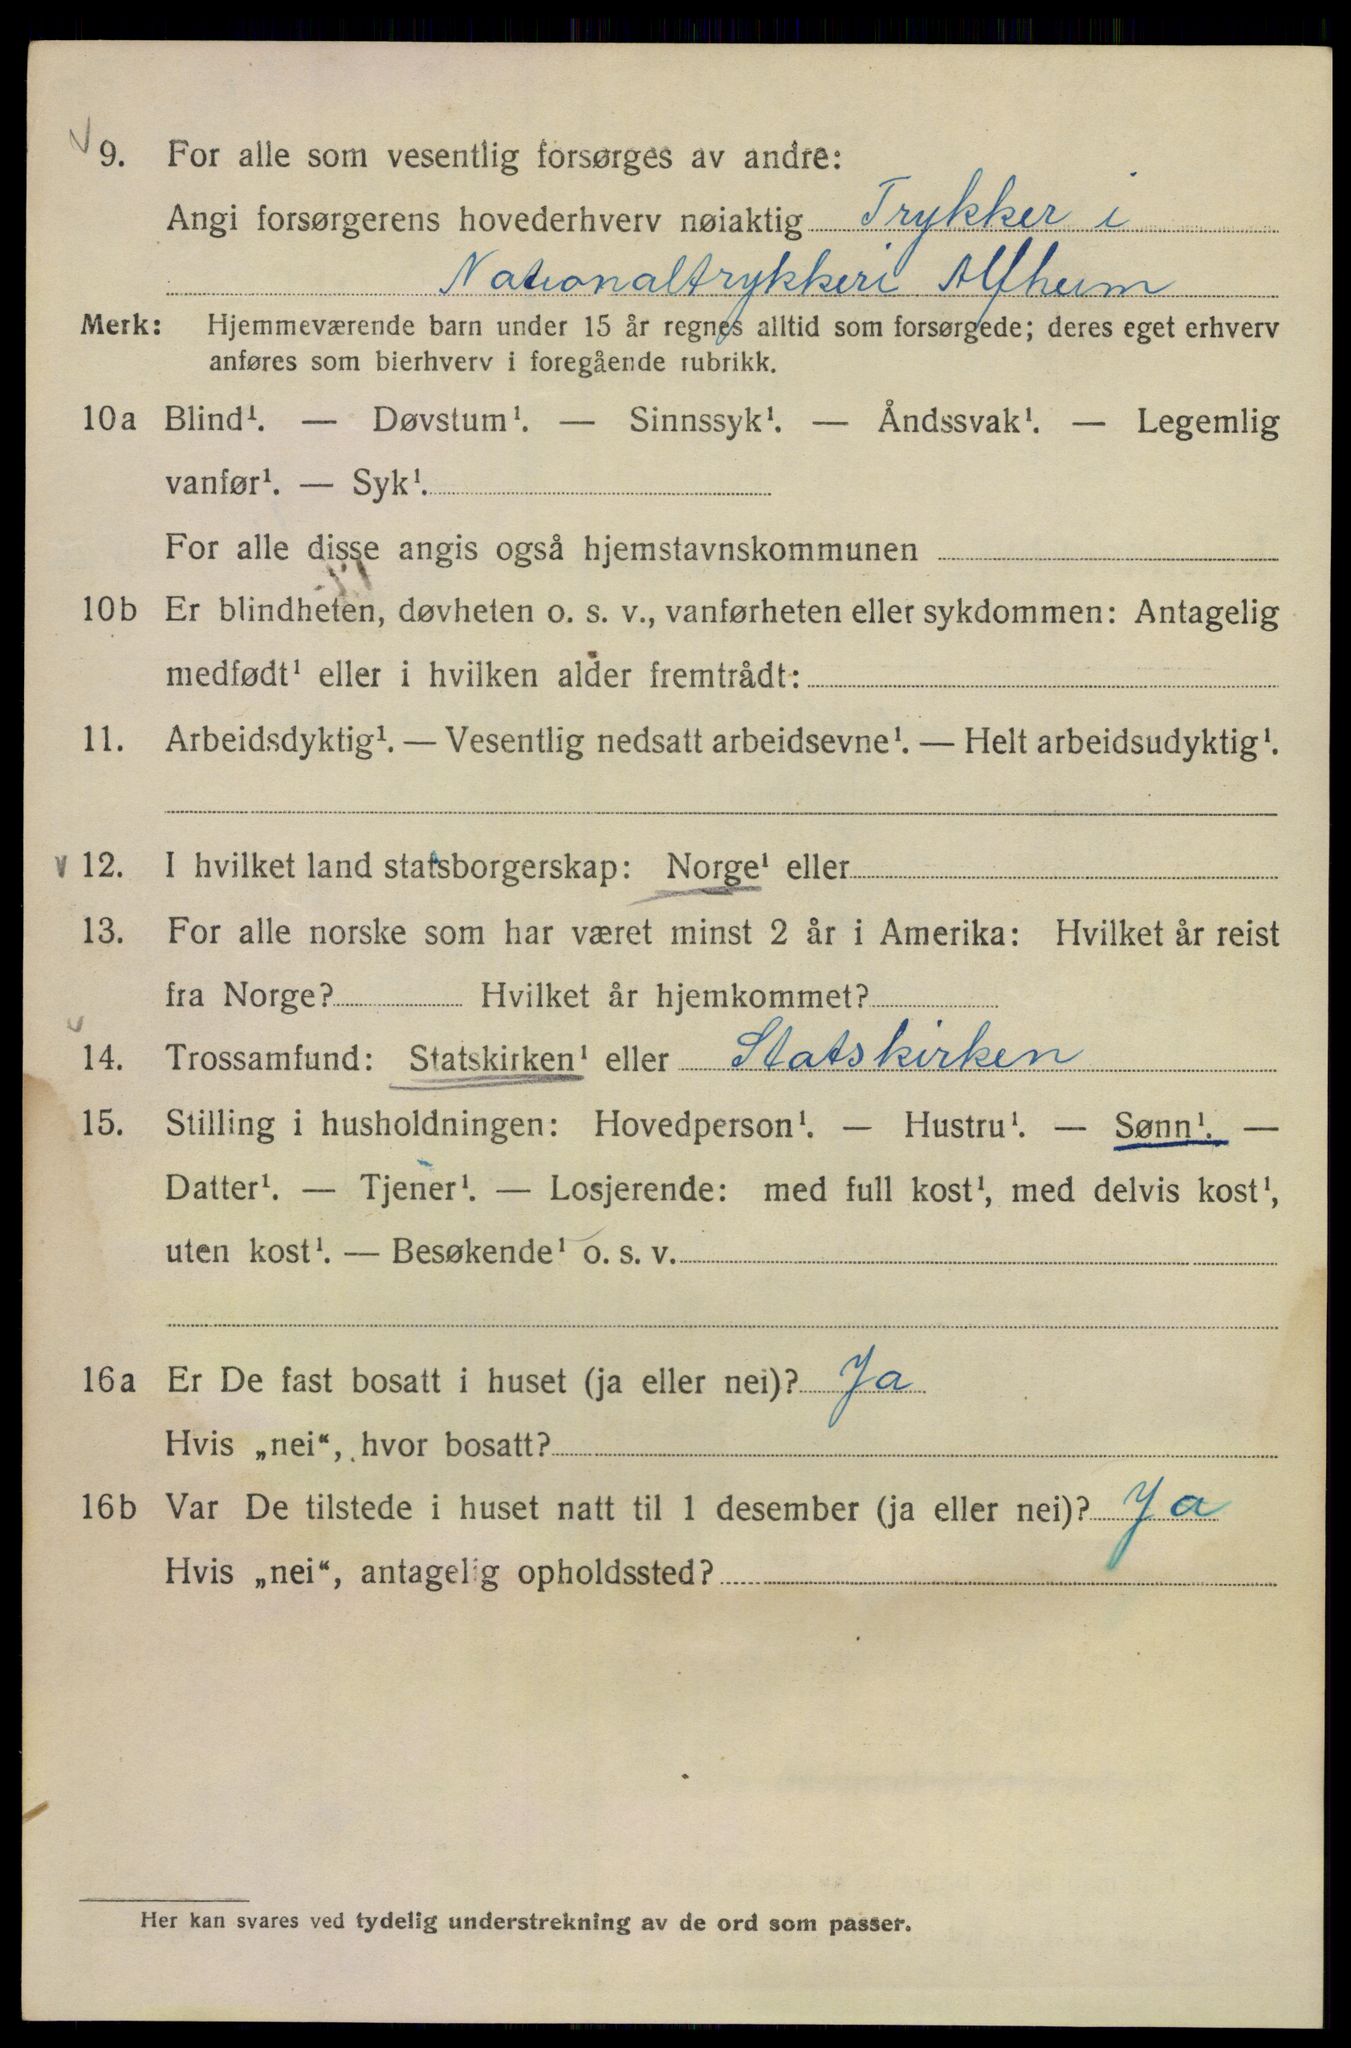 9. For alle som vesentlig forsørges av andre:
Angi forsørgerens hovederhverv nøiaktig Trykker i
Nationaltrykkeri Alfheim
Merk: Hjemmeværende barn under 15 år regnes alltid som forsørgede; deres eget erhverv
anføres som bierhverv i foregående rubrikk.
10a Blind¹. — Døvstum¹. — Sinnssyk¹. — Åndssvak¹. — Legemlig
vanfør¹. — Syk¹.
For alle disse angis også hjemstavnskommunen
10b Er blindheten, døvheten o. s. v., vanførheten eller sykdommen: Antagelig
medfødt¹ eller i hvilken alder fremtrådt:
11. Arbeidsdyktig¹. — Vesentlig nedsatt arbeidsevne¹. — Helt arbeidsudyktig¹.
12. I hvilket land statsborgerskap: Norge¹ eller
13. For alle norske som har været minst 2 år i Amerika: Hvilket år reist
fra Norge? Hvilket år hjemkommet?
14. Trossamfund: Statskirken¹ eller Statskirken
15. Stilling i husholdningen: Hovedperson¹. — Hustru¹. — Sønn¹. —
Datter¹. — Tjener¹. — Losjerende: med full kost¹, med delvis kost¹,
uten kost¹. — Besøkende¹ o. s. v.
16a Er De fast bosatt i huset (ja eller nei)? Ja
Hvis „nei“, hvor bosatt?
16b Var De tilstede i huset natt til 1 desember (ja eller nei)? Ja
Hvis „nei“, antagelig opholdssted?
Her kan svares ved tydelig understrekning av de ord som passer.